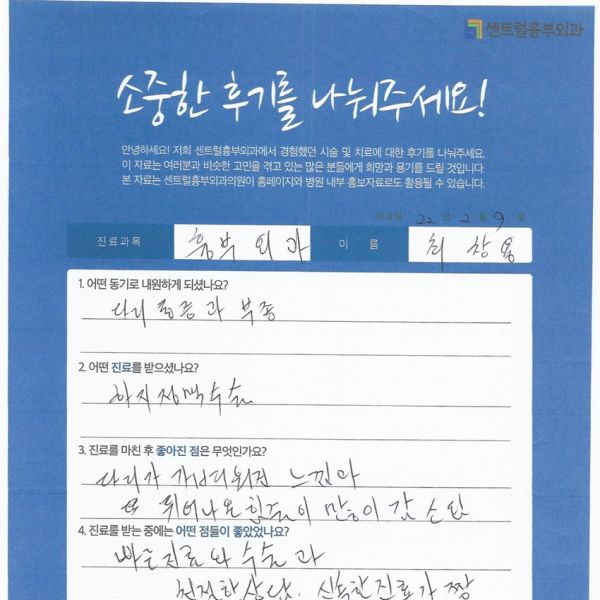 센트럴흉부외과
소중한 후기를 나눠주세요!
안녕하세요! 저희 센트럴흉부외과에서 경험했던 시술 및 치료에 대한 후기를 나눠주세요.
이 자료는 여러분과 비슷한 고민을 겪고 있는 많은 분들에게 희망과 용기를 드릴 것입니다.
본 자료는 센트럴흉부외과의원이 홈페이지와 병원 내부 홍보자료로도 활용될 수 있습니다.
작성일 22 년 2 월 9 일
진료과목 흉부외과 이 름 최창용
1. 어떤 동기로 내원하게 되셨나요?
다리 통증과 부종
2. 어떤 진료를 받으셨나요?
하지정맥수술
3. 진료를 마친 후 좋아진 점은 무엇인가요?
다리가 가벼워진 느낌과
튀어나온 힘줄이 많이 감소됨
4. 진료를 받는 중에는 어떤 점들이 좋았었나요?
빠른진료와 수술과
친절한상담. 신속한진료가 짱